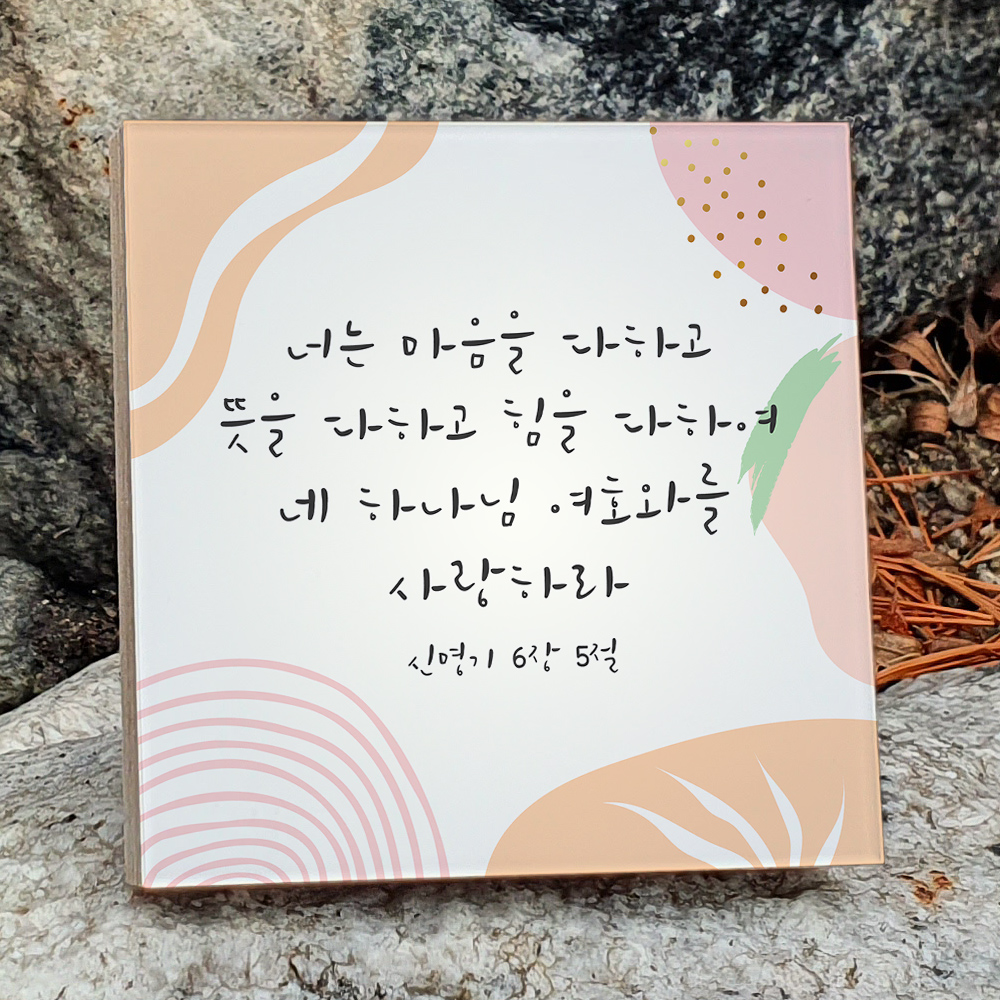 너는 마음을 다하고
뜻을 다하고 힘을 다하여
네 하나님 여호와를
사랑하라
신명기 6장 5절